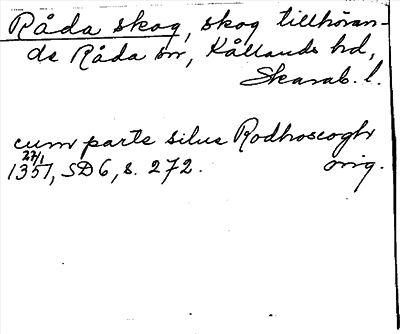 Råda skog, skog tillhöran-
de Råda sn, Kållands hd,
Skarab. l.
cum parte silue Rodhoscogh
27/1
1351, SD 6, s. 272. orig.